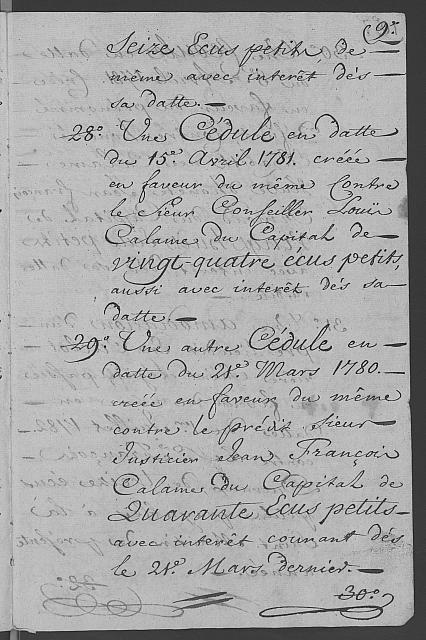 9º
Seize Ecus petits, de
même avec interêt dès
sa datte.
28º. Une Cédule en datte
du 15e. Avril 1781. créée
en faveur du même Contre
le Sieur Conseiller Louïs
Calame du Capital de
vingt-quatre ecus petits,
aussi avec interêt dès sa
datte.
29º. Une autre Cédule en
datte du 21e. Mars 1780.
créée en faveur du même
contre le prédit Sieur
Justicier Jean François
Calame du Capital de
Quarante Ecus petits
avec interêt courant dès
le 21e. Mars dernier.
30º.